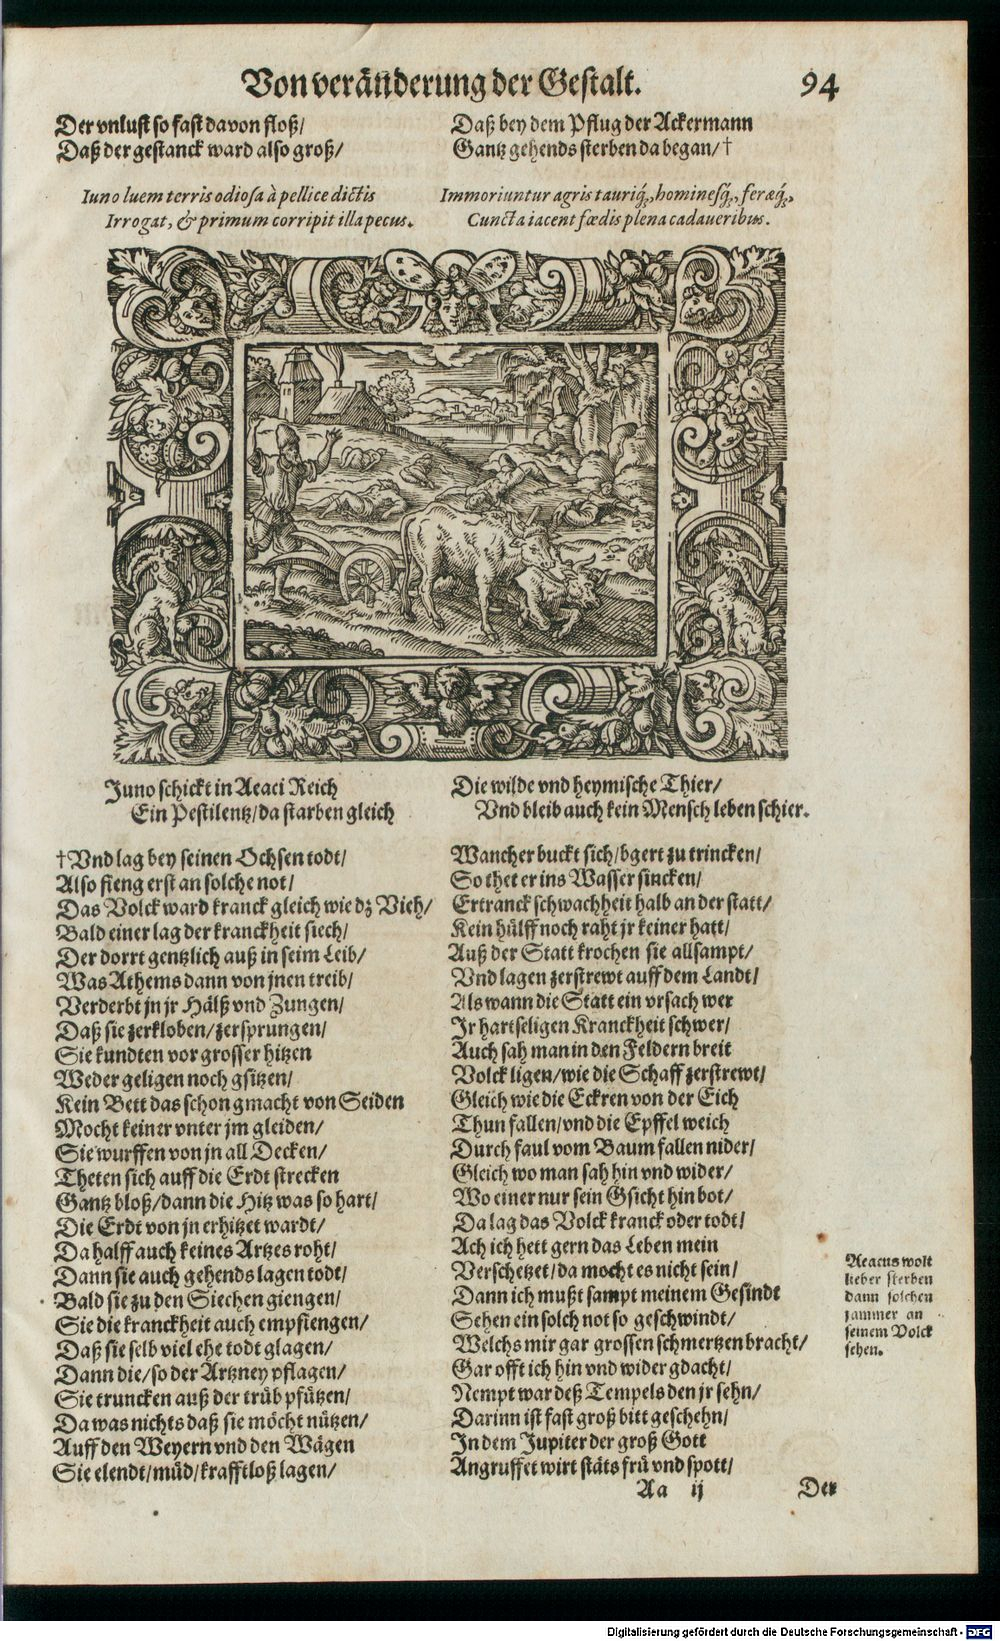 Von veränderung der Gestalt.
94
Der vnlust so fast davon floß/
Daß der gestanck ward also groß/
Daß bey dem Pflug der Ackermann
Gantz gehends sterben da began/†
Iuno luem terris odiosa à pellice dictis
Irrogat, & primum corripit illa pecus.
Immoriuntur agris tauriq́;, hominesq́;, feræq́;,
Cuncta iacent fœdis plena cadaveribus.
Juno schickt in Aeaci Reich
Ein Pestilentz/da starben gleich
Die wilde vnd heymische Thier/
Vnd bleib auch kein Mensch leben schier.
†Vnd lag bey seinen Ochsen todt/
Also fieng erst an solche not/
Das Volck ward kranck gleich wie dz Vieh/
Bald einer lag der kranckheit siech/
Der dorrt gentzlich auß in seim Leib/
Was Athems dann von jnen treib/
Verderbt jn jr Hälß vnd Zungen/
Daß sie zerkloben/zersprungen/
Sie kundten vor grosser hitzen
Weder geligen noch gsitzen/
Kein Bett das schon gmacht von Seiden
Mocht keiner vnter jm gleiden/
Sie wurffen von jn all Decken/
Theten sich auff die Erdt strecken
Gantz bloß/dann die Hitz was so hart/
Die Erdt von jn erhitzet wardt/
Da halff auch keines Artzes roht/
Dann sie auch gehends lagen todt/
Bald sie zu den Siechen giengen/
Sie die kranckheit auch empfiengen/
Daß sie selb viel ehe todt glagen/
Dann die/so der Artzney pflagen/
Sie truncken auß der trüb pfützen/
Da was nichts daß sie möcht nützen/
Auff den Weyern vnd den Wägen
Sie elendt/müd/krafftloß lagen/
Mancher buckt sich/bgert zu trincken/
So thet er ins Wasser sincken/
Ertranck schwachheit halb an der statt/
Kein hülff noch raht jr keiner hatt/
Auß der Statt krochen sie allsampt/
Vnd lagen zerstrewt auff dem Landt/
Als wann die Statt ein vrsach wer
Jr hartseligen Kranckheit schwer/
Auch sah man in den Feldern breit
Volck ligen/wie die Schaff zerstrewt/
Gleich wie die Eckren von der Eich
Thun fallen/vnd die Epffel weich
Durch faul vom Baum fallen nider/
Gleich wo man sah hin vnd wider/
Wo einer nur sein Gsicht hin bot/
Da lag das Volck kranck oder todt/
Ach ich hett gern das Leben mein
Verschetzet/da mocht es nicht sein/
Dann ich mußt sampt meinem Gesindt
Sehen ein solch not so geschwindt/
Welchs mir gar grossen schmertzen bracht/
Gar offt ich hin vnd wider gdacht/
Nempt war deß Tempels den jr sehn/
Darinn ist fast groß bitt geschehn/
In dem Jupiter der groß Gott
Angruffet wirt stäts frü vnd spott/
Aeacus wolt
lieber sterben
dann solchen
jammer an
seinem Volck
sehen.
Aa ij
Der
Digitalisierung gefördert durch die Deutsche Forschungsgemeinschaft - DFG